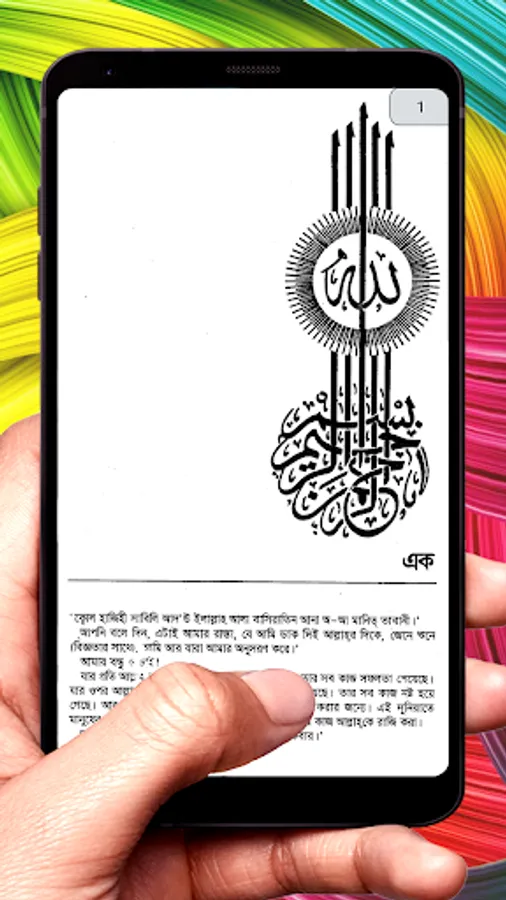 1
الله
بسم الله الرحمن الرحيم
এক
'ক্বোল হাজিহী সাবিলি আদ'উ ইলাল্লাহ আলা বাসিরাতিন আনা অ-আ মানিত্ তাবানী।'
আপনি বলে দিন, এটাই আমার রাস্তা, যে আমি ডাক দিই আল্লাহ্‌র দিকে, জেনে শুনে
(বিজ্ঞতার সাথে, আমি আর যারা আমার অনুসরণ করে।'
আমার বন্ধু ও
যার প্রতি তার সব কাজ সফলতা পেয়েছে।
যার ওপর তার সব কাজ নষ্ট হয়ে
গেছে। করার জন্যে। এই দুনিয়াতে
কাজ আল্লাহ্‌কে রাজি করা।